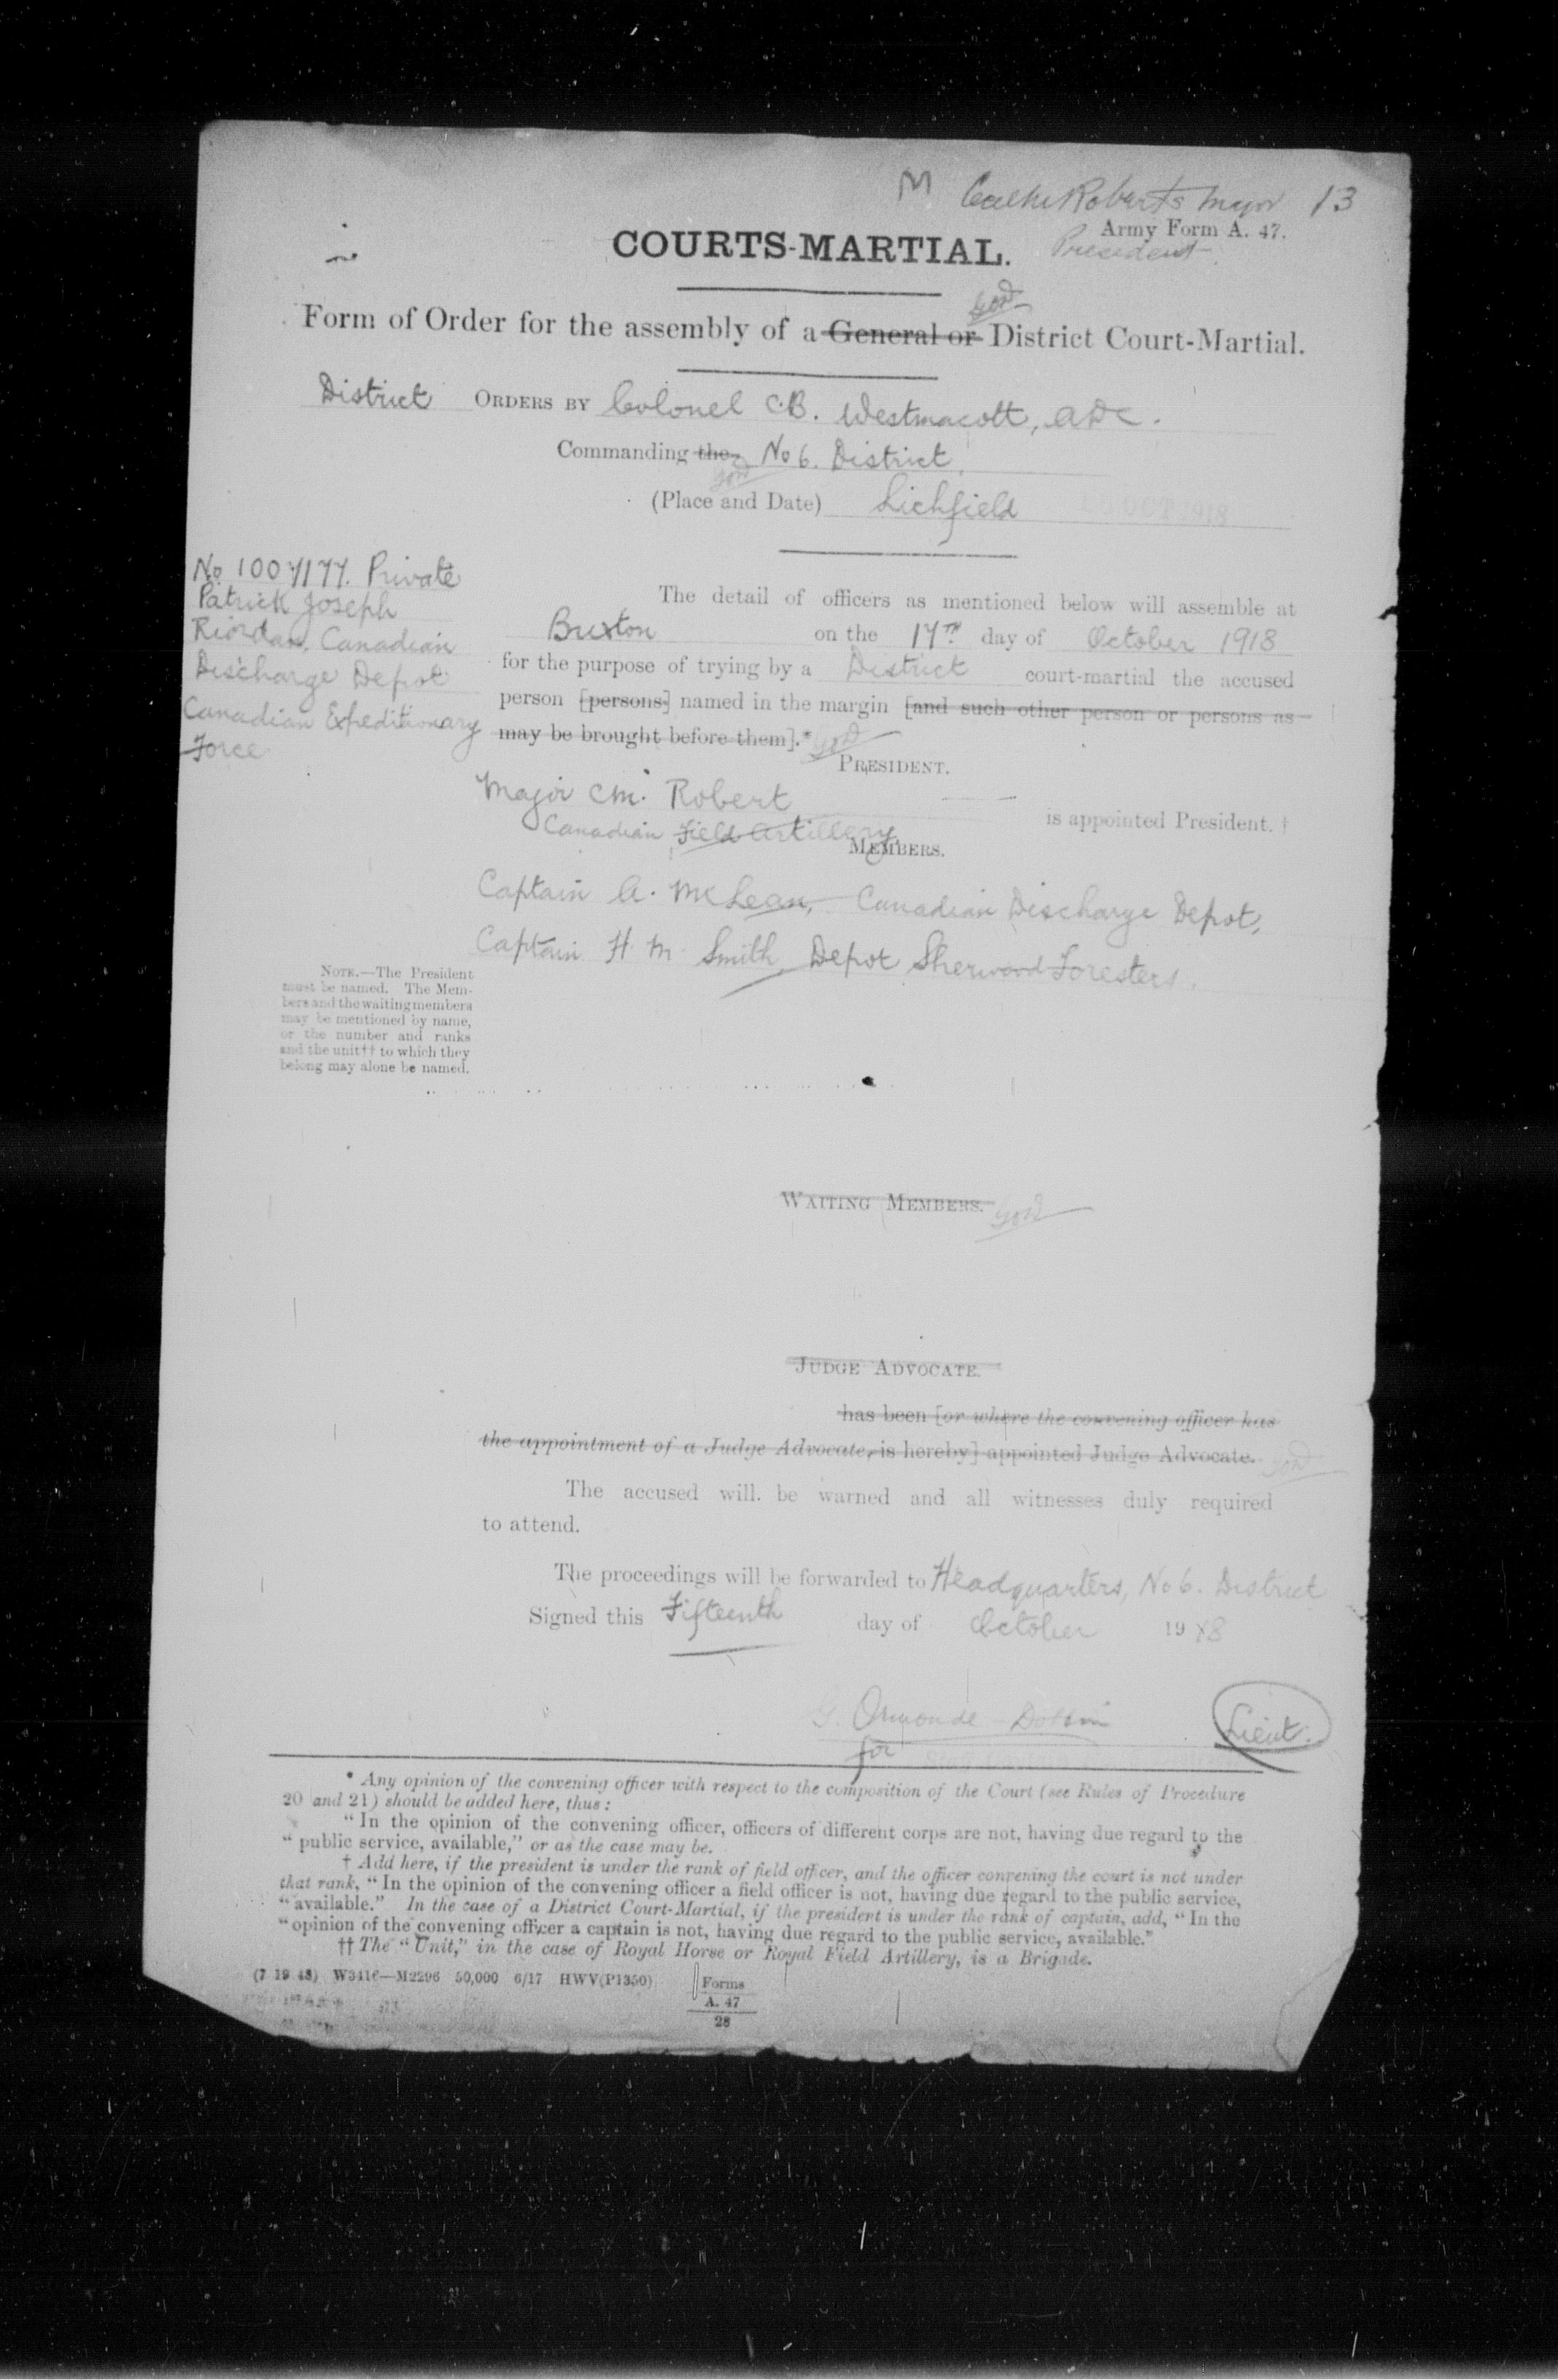 M Roberts Major 13
Army Form A. 47.
President.
COURTS-MARTIAL.
GOD
Form of Order for the assembly of a General or District Court-Martial.
District ORDERS BY Colonel C.B. Westmacott, ADC.
Commanding the No 6. District
GOD
(Place and Date) Lichfield OCT 1918
No 1007177. Private
Patrick Joseph
Riordan, Canadian
Discharge Depot
Canadian Expeditionary
Force
The detail of officers as mentioned below will assemble at
Buxton on the 17TH day of October 1918
for the purpose of trying by a District court-martial the accused
person [persons] named in the margin [and such other person or persons as
may be brought before them].* GOD
PRESIDENT.
Major C.M. Robert
is appointed President. †
Canadian Field Artillery
MEMBERS.
Captain A. McLean, Canadian Discharge Depot,
Captain H. M. Smith, Depot Sherwood Foresters.
NOTE.—The President
must be named. The Mem-
bers and the waiting members
may be mentioned by name,
or the number and ranks
and the unit†† to which they
belong may alone be named.
WAITING MEMBERS. GOD
JUDGE ADVOCATE.
has been [or where the convening officer has
the appointment of a Judge Advocate, is hereby] appointed Judge Advocate. GOD
The accused will be warned and all witnesses duly required
to attend.
The proceedings will be forwarded to Headquarters, No 6. District
Signed this Fifteenth day of October 1918
G. Ormonde Dobbin Lieut.
for
* Any opinion of the convening officer with respect to the composition of the Court (see Rules of Procedure
20 and 21) should be added here, thus:
“In the opinion of the convening officer, officers of different corps are not, having due regard to the
“public service, available,” or as the case may be.
† Add here, if the president is under the rank of field officer, and the officer convening the court is not under
that rank, “In the opinion of the convening officer a field officer is not, having due regard to the public service,
“available.” In the case of a District Court-Martial, if the president is under the rank of captain, add, “In the
“opinion of the convening officer a captain is not, having due regard to the public service, available.”
†† The “Unit,” in the case of Royal Horse or Royal Field Artillery, is a Brigade.
(7 19 48) W3416—M2296 50,000 6/17 HWV(P1350) Forms
A. 47
28